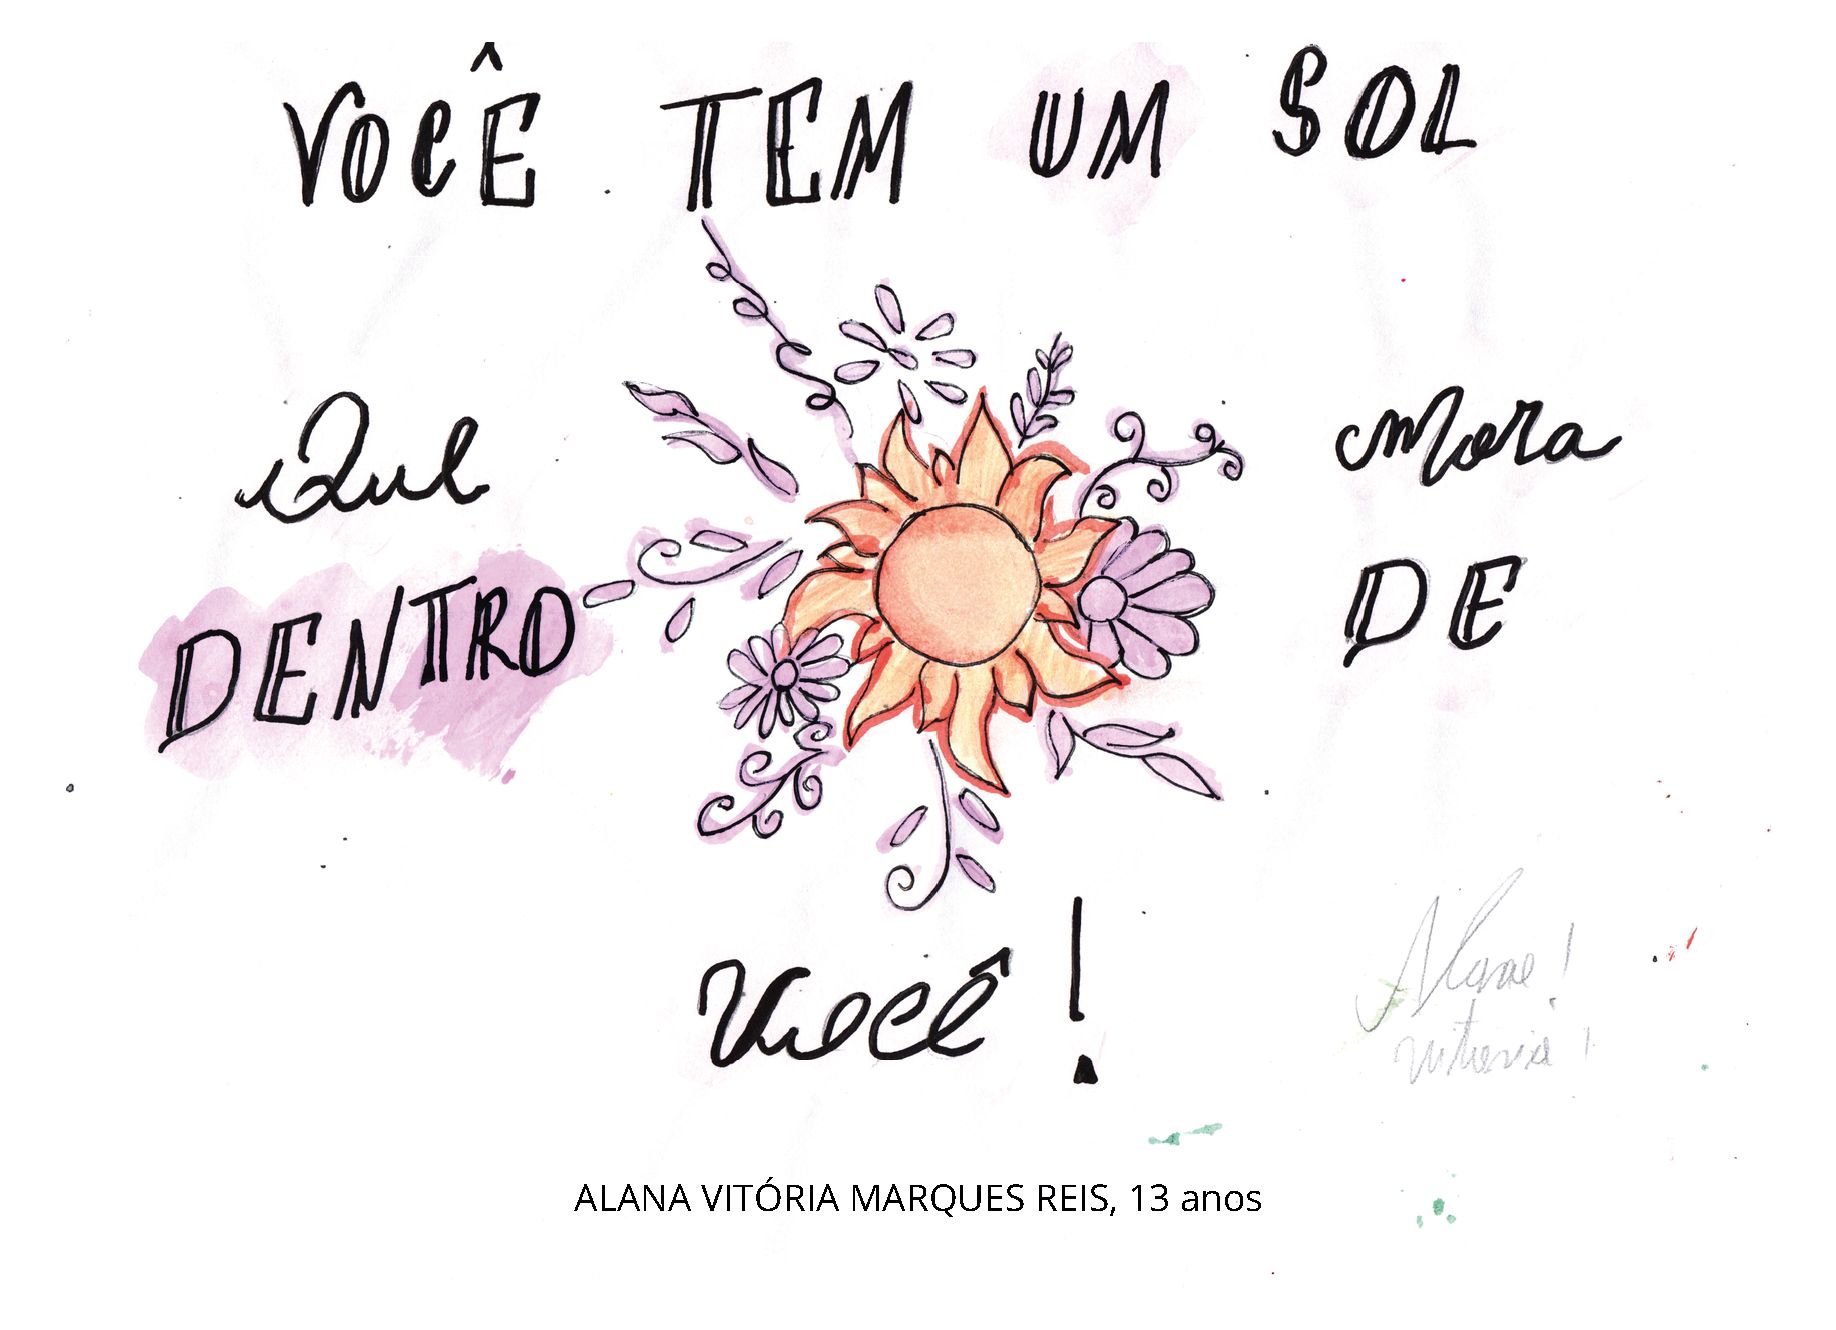 VOCÊ TEM UM SOL
Que mora
DENTRO DE
Você!
Alana!
Vitória!
ALANA VITÓRIA MARQUES REIS, 13 anos